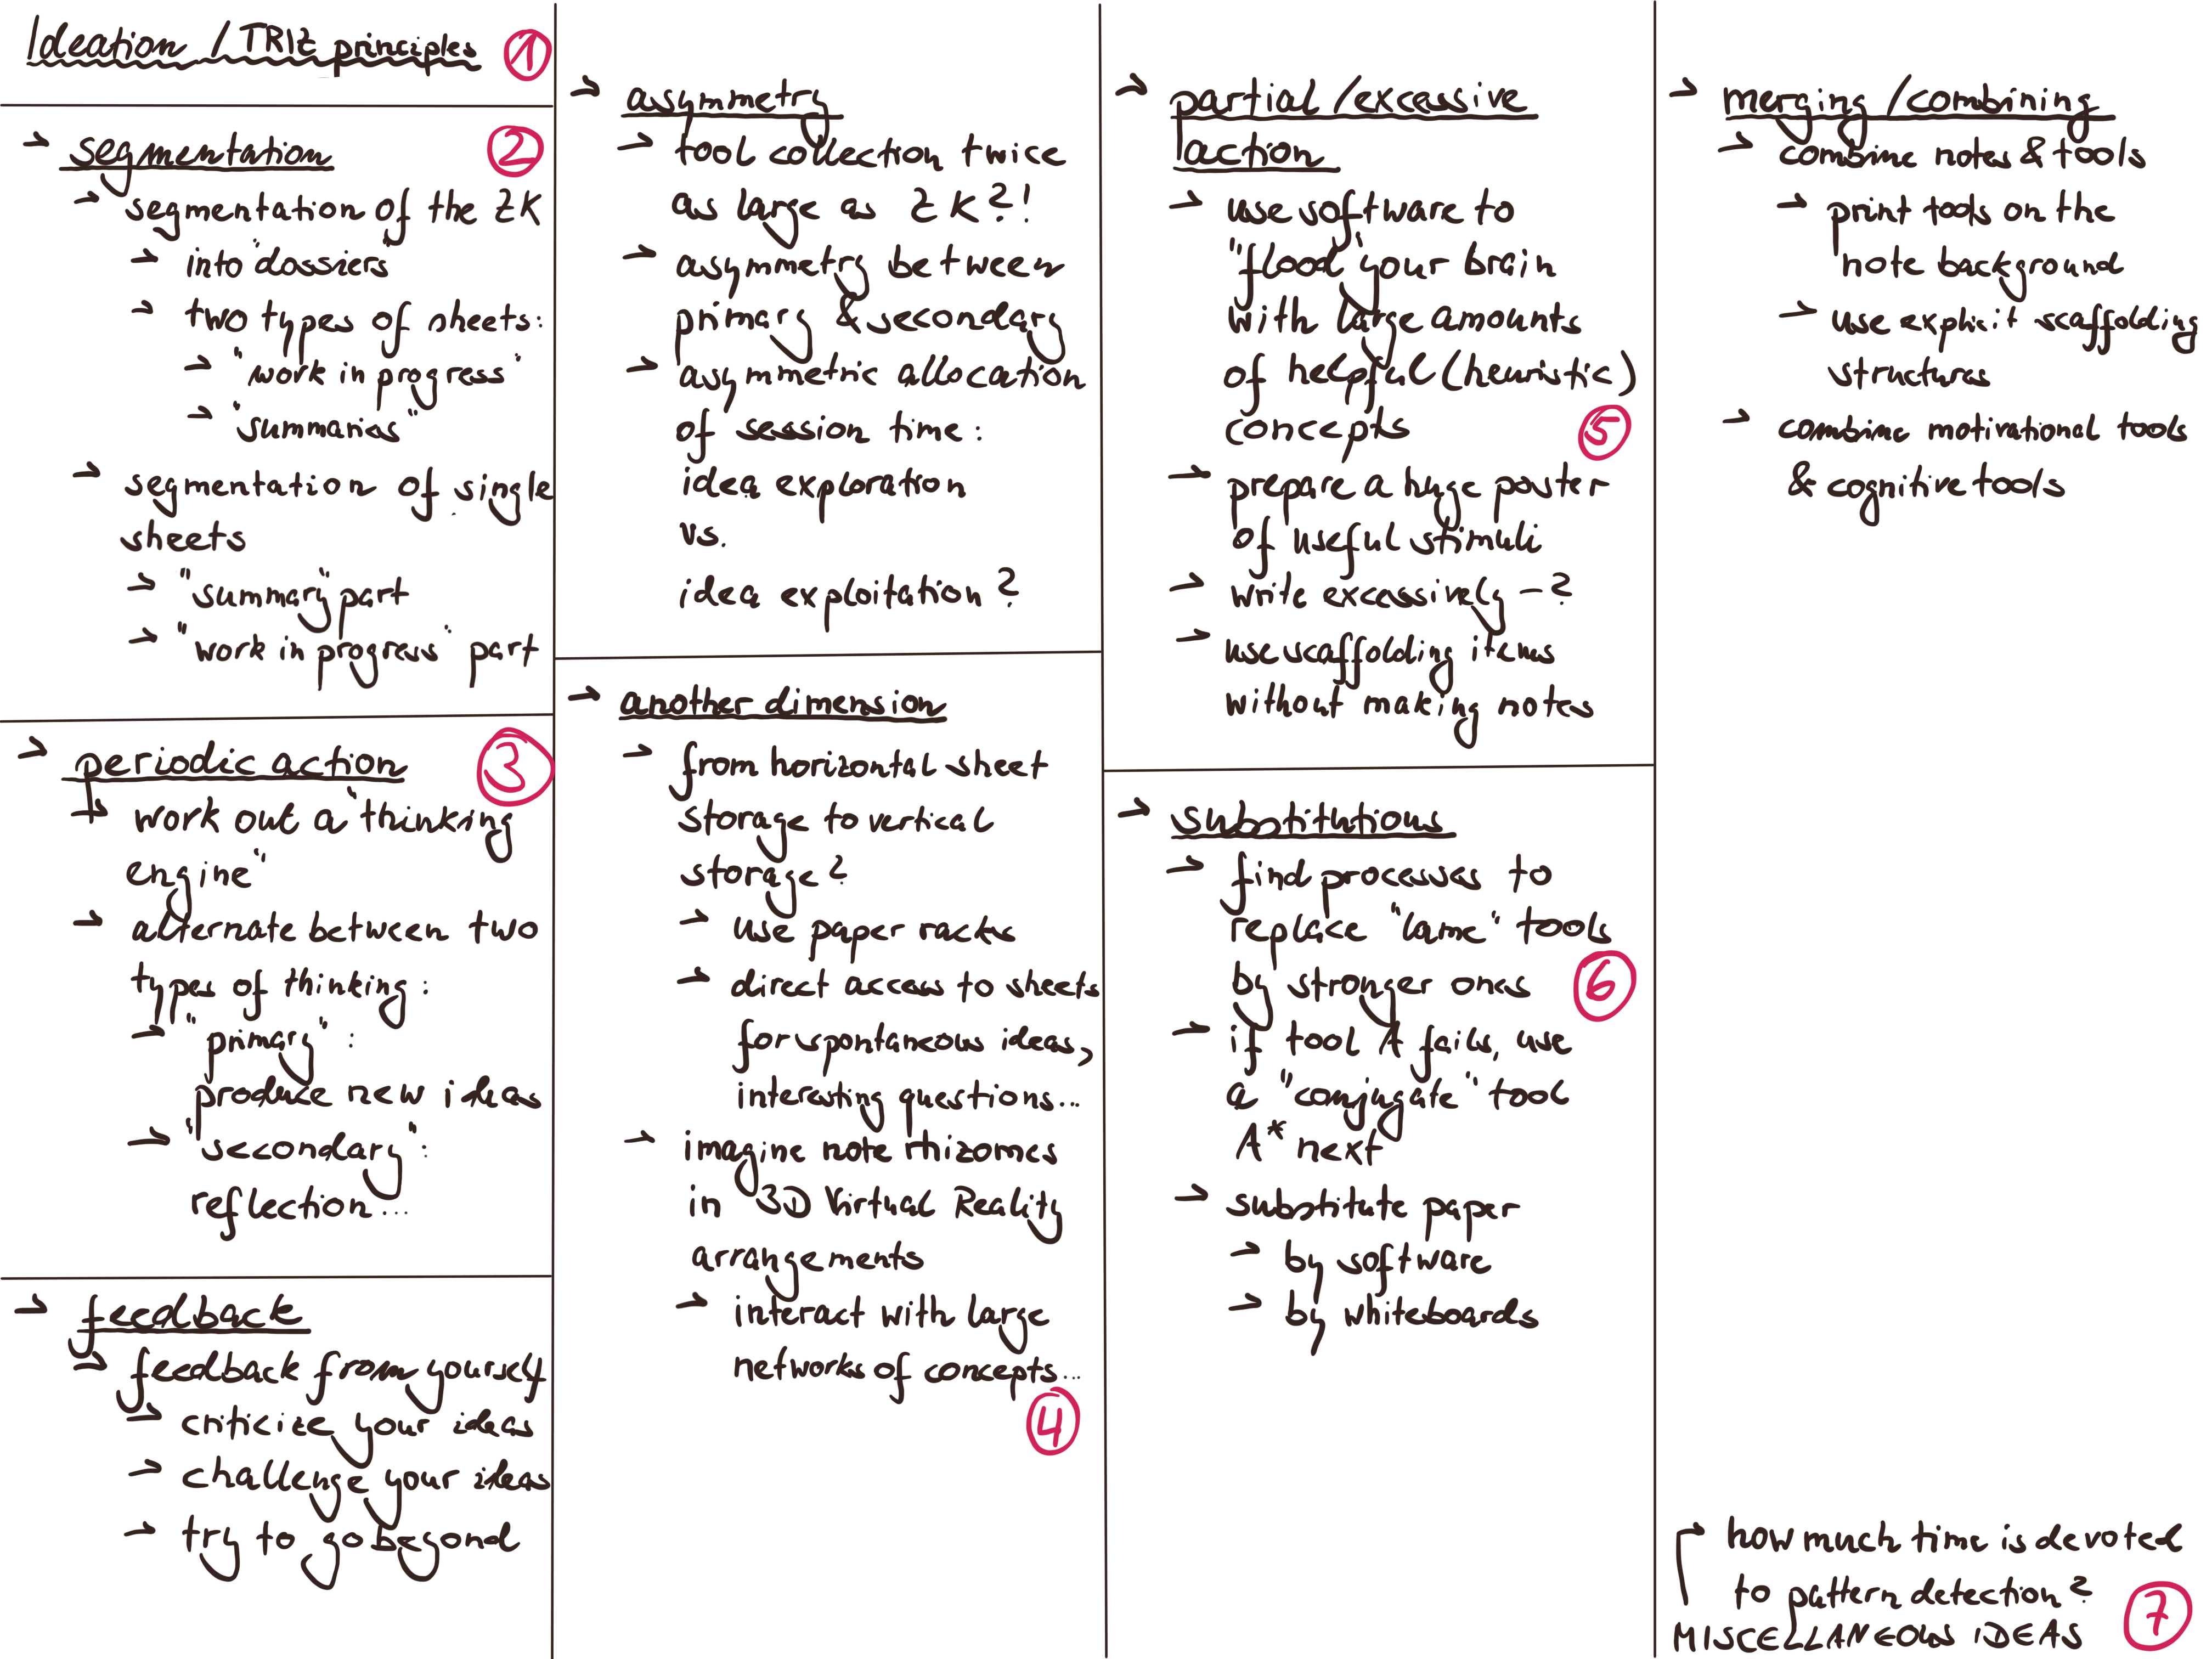 Ideation / TRIZ principles ①
→ segmentation ②
→ segmentation of the ZK
→ into "dossiers"
→ two types of sheets:
→ "work in progress"
→ "summaries"
→ segmentation of single
sheets
→ "summary" part
→ "work in progress" part
→ periodic action ③
→ work out a "thinking
engine"
→ alternate between two
types of thinking:
→ "primary":
produce new ideas
→ "secondary":
reflection...
→ feedback
→ feedback from yourself
→ criticize your ideas
→ challenge your ideas
→ try to go beyond
→ asymmetry
→ tool collection twice
as large as ZK?!
→ asymmetry between
primary & secondary
→ asymmetric allocation
of session time:
idea exploration
vs.
idea exploitation?
→ another dimension
→ from horizontal sheet
storage to vertical
storage?
→ use paper racks
→ direct access to sheets
for spontaneous ideas,
interesting questions...
→ imagine note rhizomes
in 3D Virtual Reality
arrangements
→ interact with large
networks of concepts...
④
→ partial / excessive
action
→ use software to
"flood" your brain
with large amounts
of helpful (heuristic)
concepts ⑤
→ prepare a huge poster
of useful stimuli
→ write excessively – ?
→ use scaffolding items
without making notes
→ substitutions
→ find processes to
replace "lame" tools
by stronger ones ⑥
→ if tool A fails, use
a "conjugate" tool
A* next
→ substitute paper
→ by software
→ by whiteboards
→ merging / combining
→ combine notes & tools
→ print tools on the
note background
→ use explicit scaffolding
structures
→ combine motivational tools
& cognitive tools
→ how much time is devoted
to pattern detection?
MISCELLANEOUS IDEAS ⑦